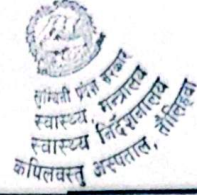 लुम्बिनी प्रदेश सरकार
स्वास्थ्य मन्त्रालय
स्वास्थ्य निर्देशनालय
कपिलवस्तु अस्पताल, तौलिहवा